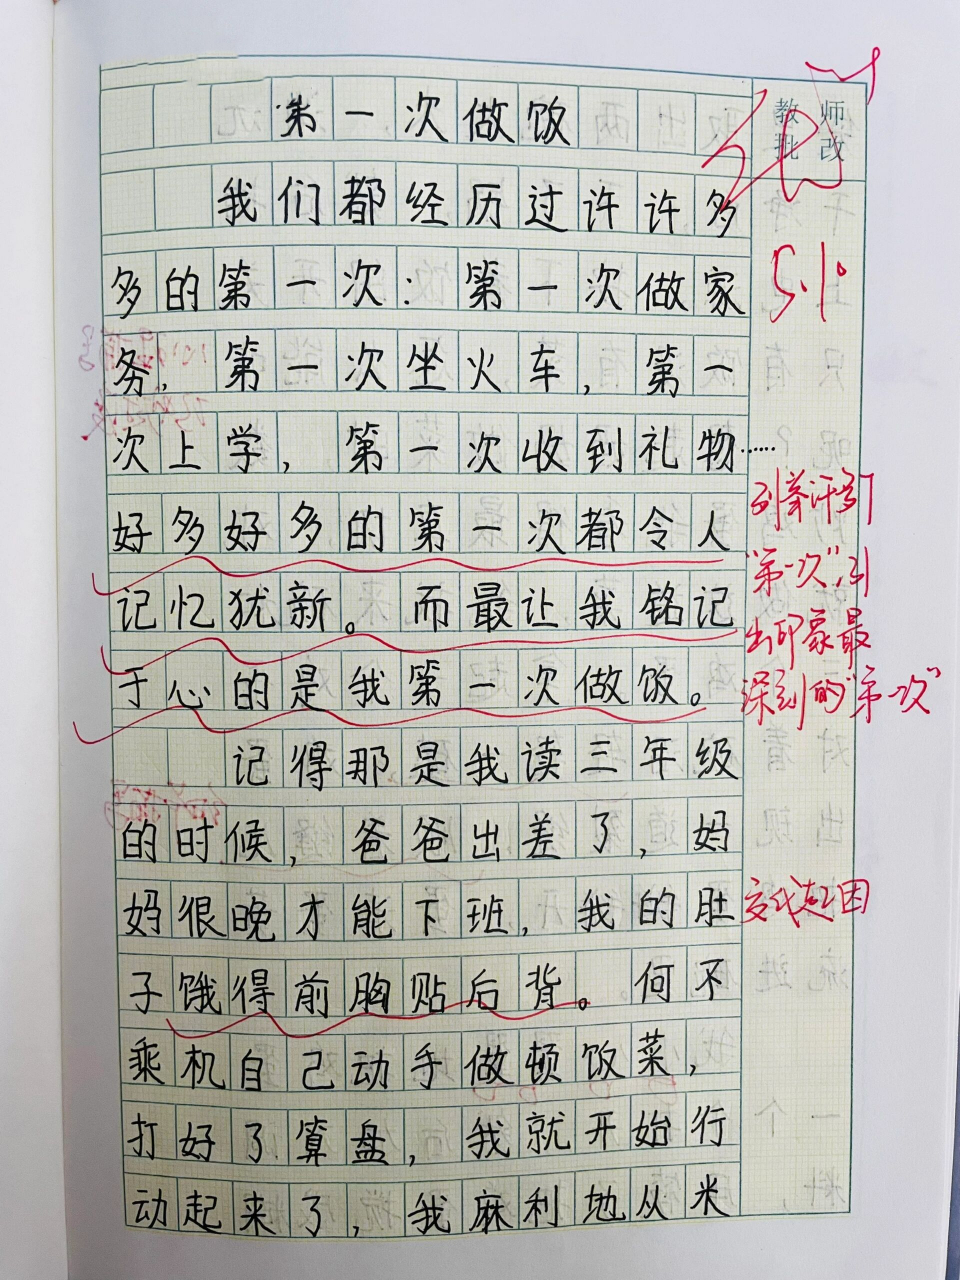 第一次做饭
教师
批改
我们都经历过许许多
5.1.
多的第一次：第一次做家
务，第一次坐火车，第一
次上学，第一次收到礼物……
列举许多
好多好多的第一次都令人
"第一次"，引
记忆犹新。而最让我铭记
出印象最
于心的是我第一次做饭。
深刻的"第一次"
记得那是我读三年级
的时候，爸爸出差了，妈
妈很晚才能下班，我的肚
交代起因
子饿得前胸贴后背。何不
乘机自己动手做顿饭菜，
打好了算盘，我就开始行
动起来了，我麻利地从米